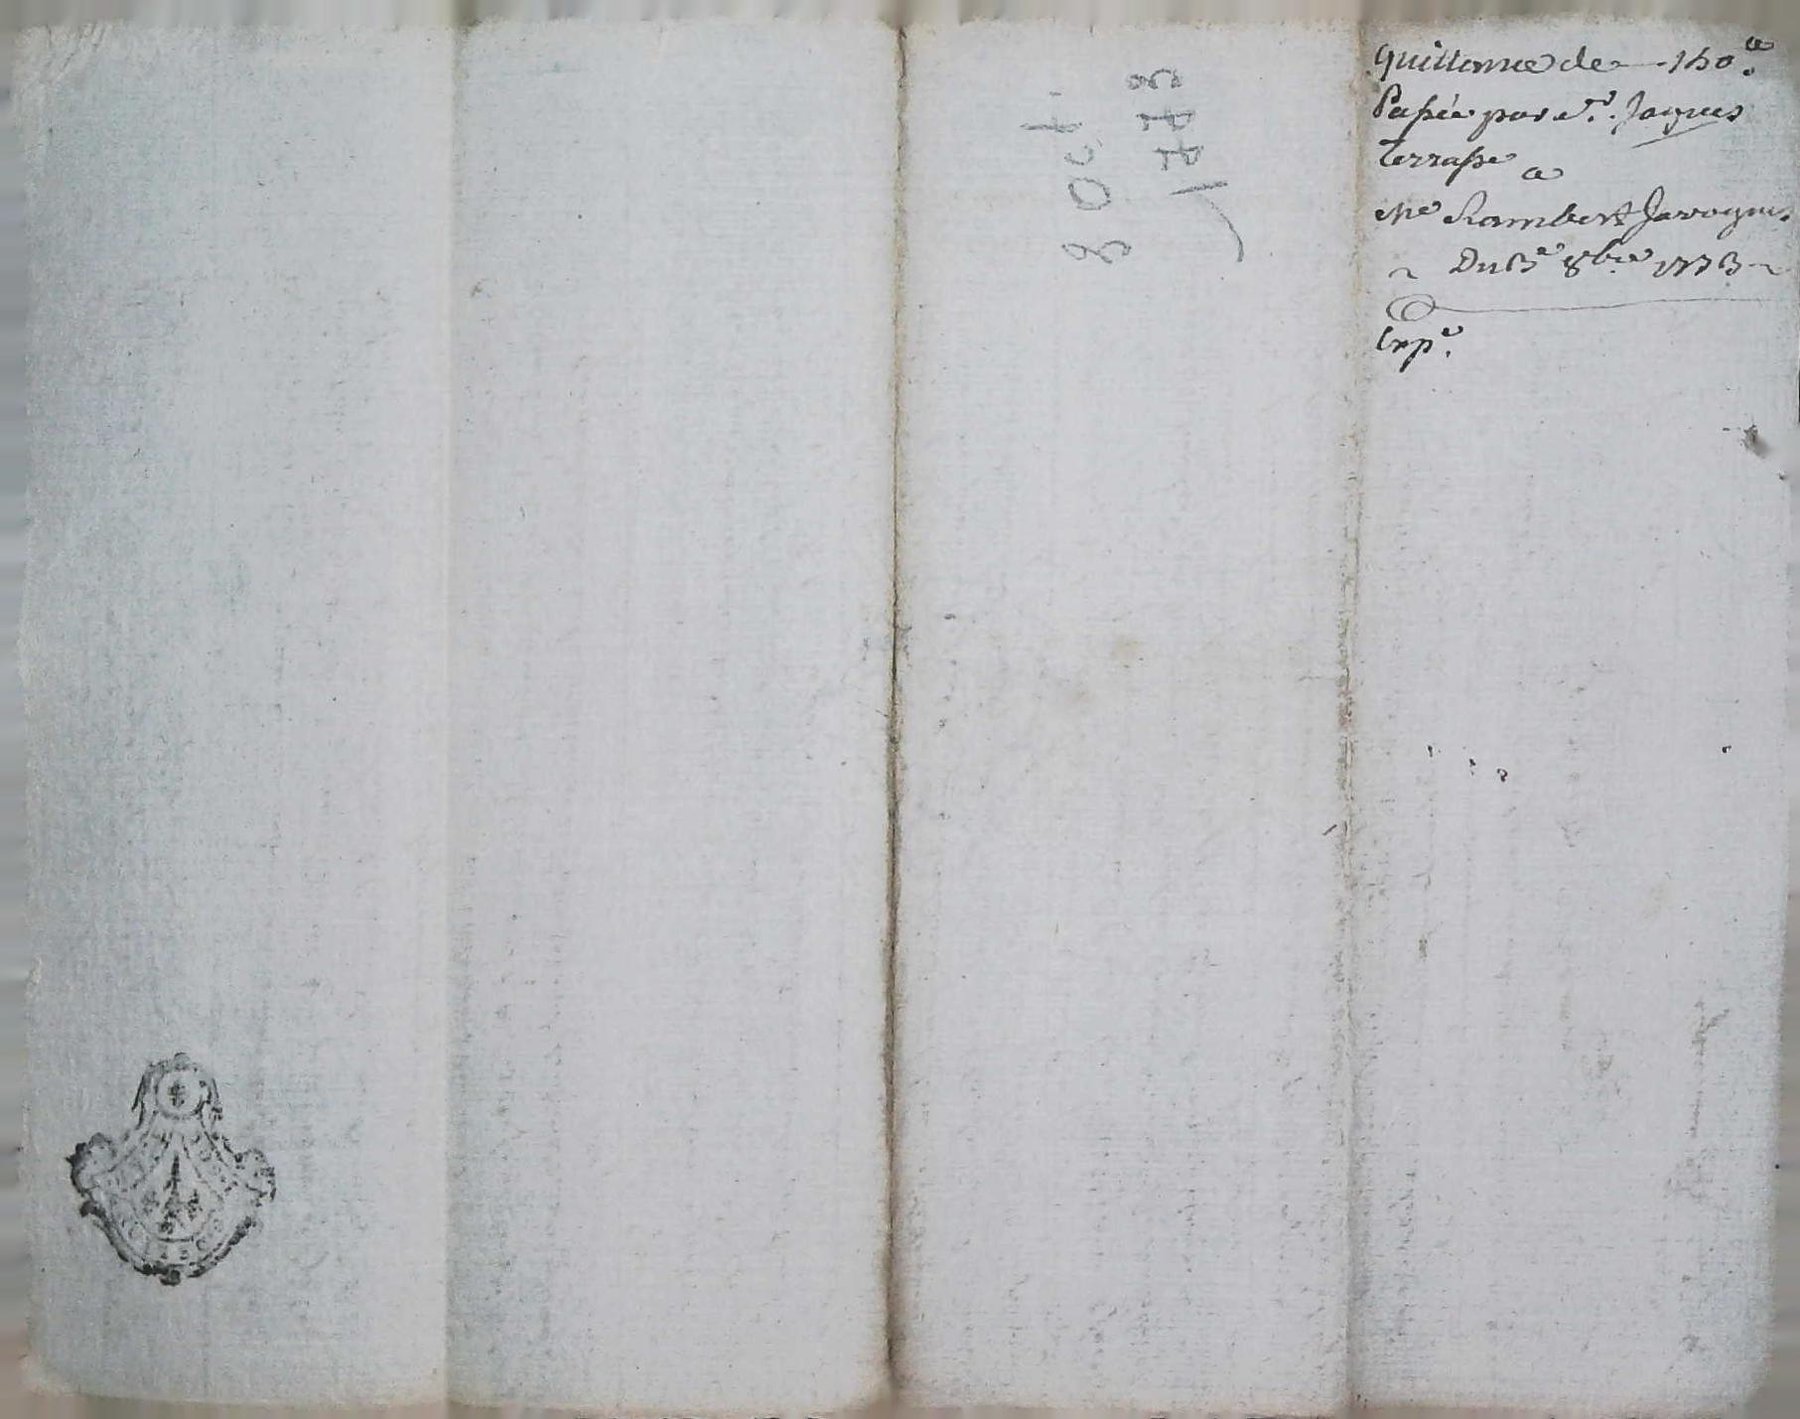 Quittance de 150.ᵗᵗ
Passée par Sʳ. Jaques
Terrasse a
Mᵉ Rambert Javogues
Du 3ᵉ 8bre 1773
Expᵉ.
3 Oct.
1773